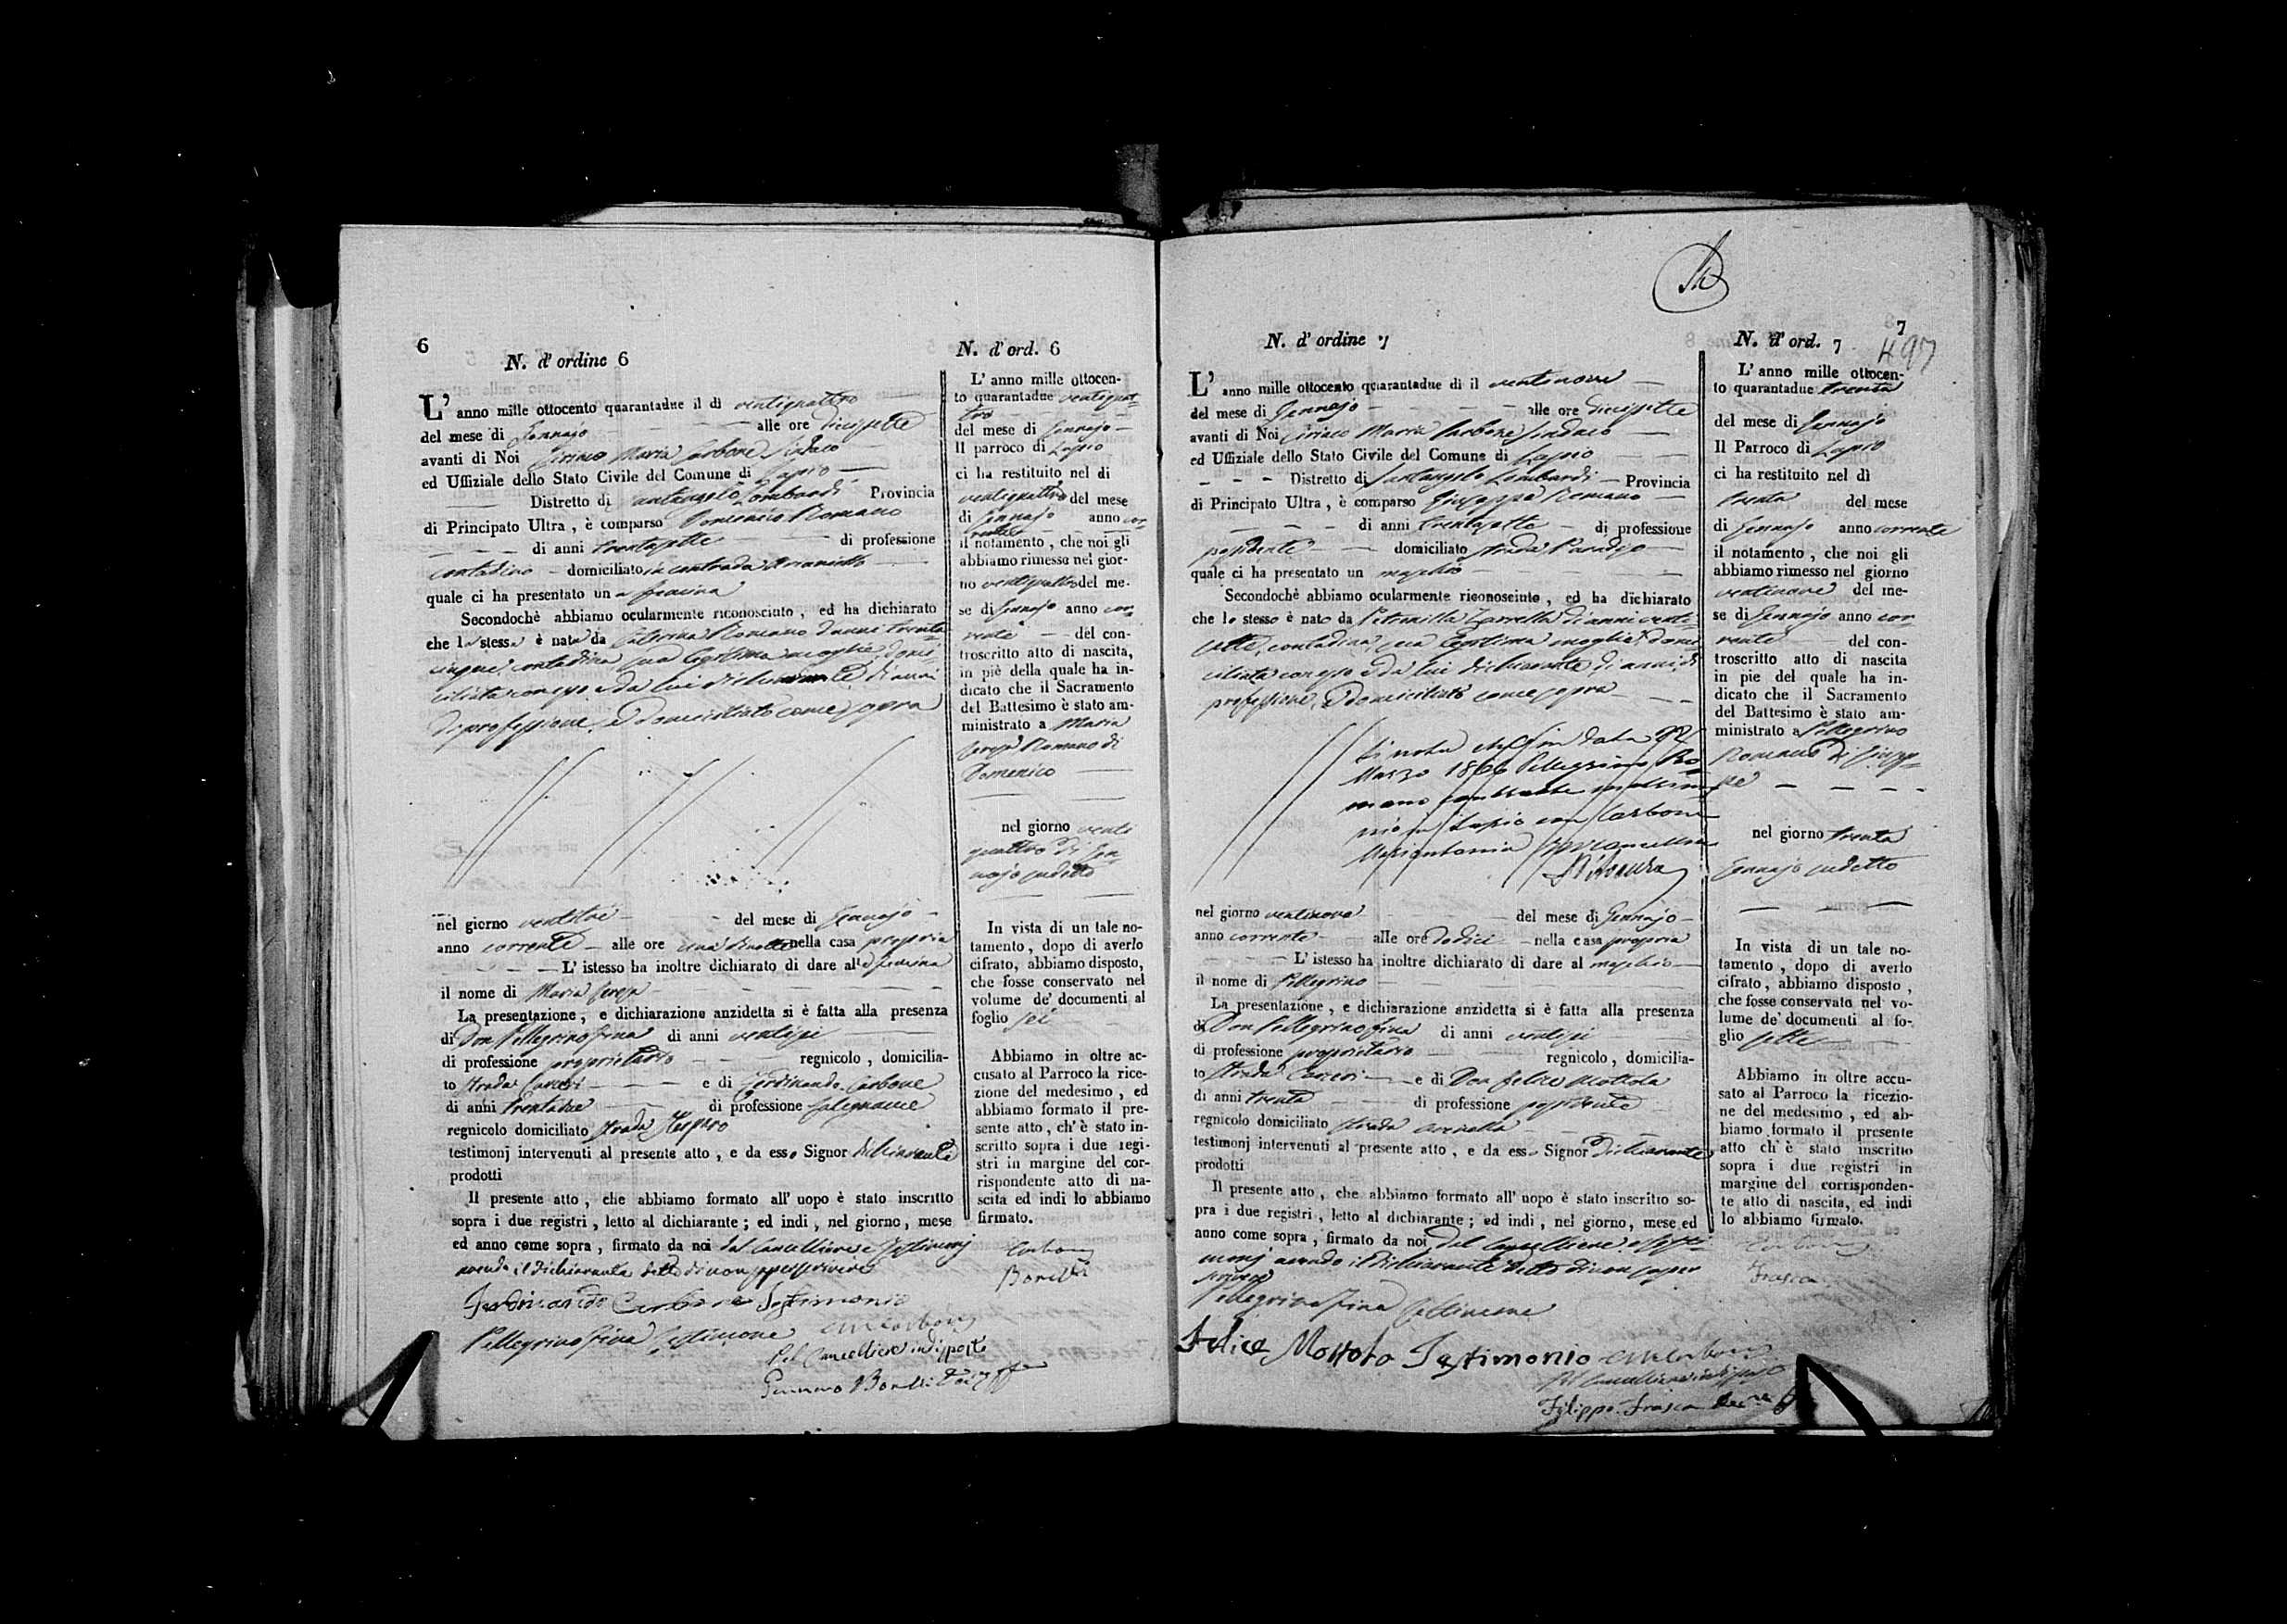 6
N. d' ordine 6
L' anno mille ottocento quarantadue il di ventiquattro
del mese di Gennajo alle ore diecisette
avanti di Noi Ciriaco Maria Carbone Sindaco
ed Uffiziale dello Stato Civile del Comune di Lapio
Distretto di Santangelo Lombardi Provincia
di Principato Ultra, è comparso Domenico Romano
di anni trentasette di professione
contadino domiciliato in contrada Arianiello
quale ci ha presentato una femina
Secondochè abbiamo ocularmente riconosciuto, ed ha dichiarato
che la stessa è nata da Caterina Romano d'anni trenta
cinque, contadina sua legittima moglie, domi-
ciliata con esso e da lui dichiarante di anni
di professione, e domiciliato come sopra
nel giorno ventitre del mese di Gennajo
anno corrente alle ore una nella casa propria
L' istesso ha inoltre dichiarato di dare alla femina
il nome di Maria Teresa
La presentazione, e dichiarazione anzidetta si è fatta alla presenza
di Don Pellegrino Fina di anni ventisei
di professione proprietario regnicolo, domicilia-
to Strada Carceri e di Ferdinando Carbone
di anni trentadue di professione falegname
regnicolo domiciliato strada
testimonj intervenuti al presente atto, e da esso Signor dichiarante
prodotti
Il presente atto, che abbiamo formato all' uopo è stato inscritto
sopra i due registri, letto al dichiarante; ed indi, nel giorno, mese
ed anno come sopra, firmato da noi dal Cancelliere e Testimonj
avendo il Dichiarante detto di non saper scrivere
Ferdinando Carbone Testimonio
Pellegrino Fina Testimone
Pel Cancelliere indisposto
Borelli
N. d' ord. 6
L' anno mille ottocen-
to quarantadue ventiquat-
tro
del mese di Gennajo
Il parroco di Lapio
ci ha restituito nel di
ventiquattro del mese
di Gennajo anno cor-
rente
il notamento, che noi gli
abbiamo rimesso nel gior-
no ventiquattro del me-
se di Gennajo anno cor-
rente del con-
troscritto atto di nascita,
in piè della quale ha in-
dicato che il Sacramento
del Battesimo è stato am-
ministrato a Maria
Teresa Romano di
Domenico
nel giorno venti
quattro di Gen-
najo sudetto
In vista di un tale no-
tamento, dopo di averlo
cifrato, abbiamo disposto,
che fosse conservato nel
volume de' documenti al
foglio sei
Abbiamo in oltre ac-
cusato al Parroco la rice-
zione del medesimo, ed
abbiamo formato il pre-
sente atto, ch' è stato in-
scritto sopra i due regi-
stri in margine del cor-
rispondente atto di na-
scita ed indi lo abbiamo
firmato.
Carbone
Borelli
N. d' ordine 7
L' anno mille ottocento quarantadue di il ventinove
del mese di Gennajo alle ore diecisette
avanti di Noi Ciriaco Maria Carbone Sindaco
ed Uffiziale dello Stato Civile del Comune di Lapio
Distretto di Santangelo Lombardi Provincia
di Principato Ultra, è comparso Giuseppe Romano
di anni trentasette di professione
possidente domiciliato strada Paradiso
quale ci ha presentato un maschio
Secondochè abbiamo ocularmente riconosciuto, ed ha dichiarato
che lo stesso è nato da Petronilla Zarrella di anni venti-
sette, contadina, sua legittima moglie, domi-
ciliata con esso e da lui dichiarante, di anni, di
professione, e domiciliato come sopra
Si nota che in data 22
Marzo 1866 Pellegrino Ro-
mano contrasse matrimo-
nio in Lapio con Carbone
Mariantonia
nel giorno ventinove del mese di Gennajo
anno corrente alle ore dodici nella casa propria
L' istesso ha inoltre dichiarato di dare al maschio
il nome di Pellegrino
La presentazione, e dichiarazione anzidetta si è fatta alla presenza
di Don Pellegrino Fina di anni ventisei
di professione proprietario regnicolo, domicilia-
to Strada Carceri e di Don Felice Mottola
di anni trenta di professione possidente
regnicolo domiciliato strada
testimonj intervenuti al presente atto, e da esso Signor Dichiarante
prodotti
Il presente atto, che abbiamo formato all' uopo è stato inscritto so-
pra i due registri, letto al dichiarante; ed indi, nel giorno, mese ed
anno come sopra, firmato da noi dal Cancelliere e Testi-
monj avendo il Dichiarante detto di non saper
scrivere
Pellegrino Fina Testimone
Felice Mottola Testimonio
Pel Cancelliere indisposto
Filippo Frasca
7
497
N. d' ord. 7
L' anno mille ottocen-
to quarantadue trenta
del mese di Gennajo
Il Parroco di Lapio
ci ha restituito nel dì
trenta del mese
di Gennajo anno corrente
il notamento, che noi gli
abbiamo rimesso nel giorno
ventinove del me-
se di Gennajo anno cor-
rente del con-
troscritto atto di nascita
in pie del quale ha in-
dicato che il Sacramento
del Battesimo è stato am-
ministrato a Pellegrino
Romano di Giusep-
pe
nel giorno trenta
Gennajo sudetto
In vista di un tale no-
tamento, dopo di averlo
cifrato, abbiamo disposto,
che fosse conservato nel vo-
lume de' documenti al fo-
glio sette
Abbiamo in oltre accu-
sato al Parroco la ricezio-
ne del medesimo, ed ab-
biamo formato il presente
atto ch' è stato inscritto
sopra i due registri in
margine del corrisponden-
te atto di nascita, ed indi
lo abbiamo firmato.
Carbone
Frasca